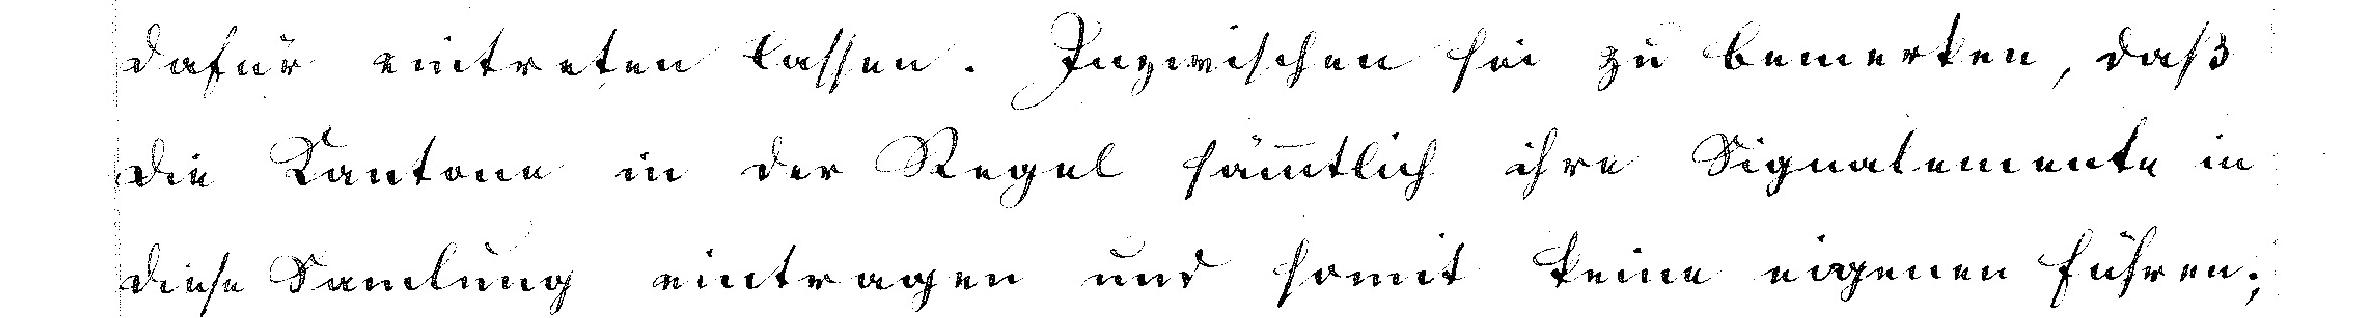 dafür eintreten lassen. Inzwischen sei zu bemerken, daß
die Kantone in der Regel säm̅tlich ihre Signalemente in
diese Samlung eintragen und somit keine eigenen führen;